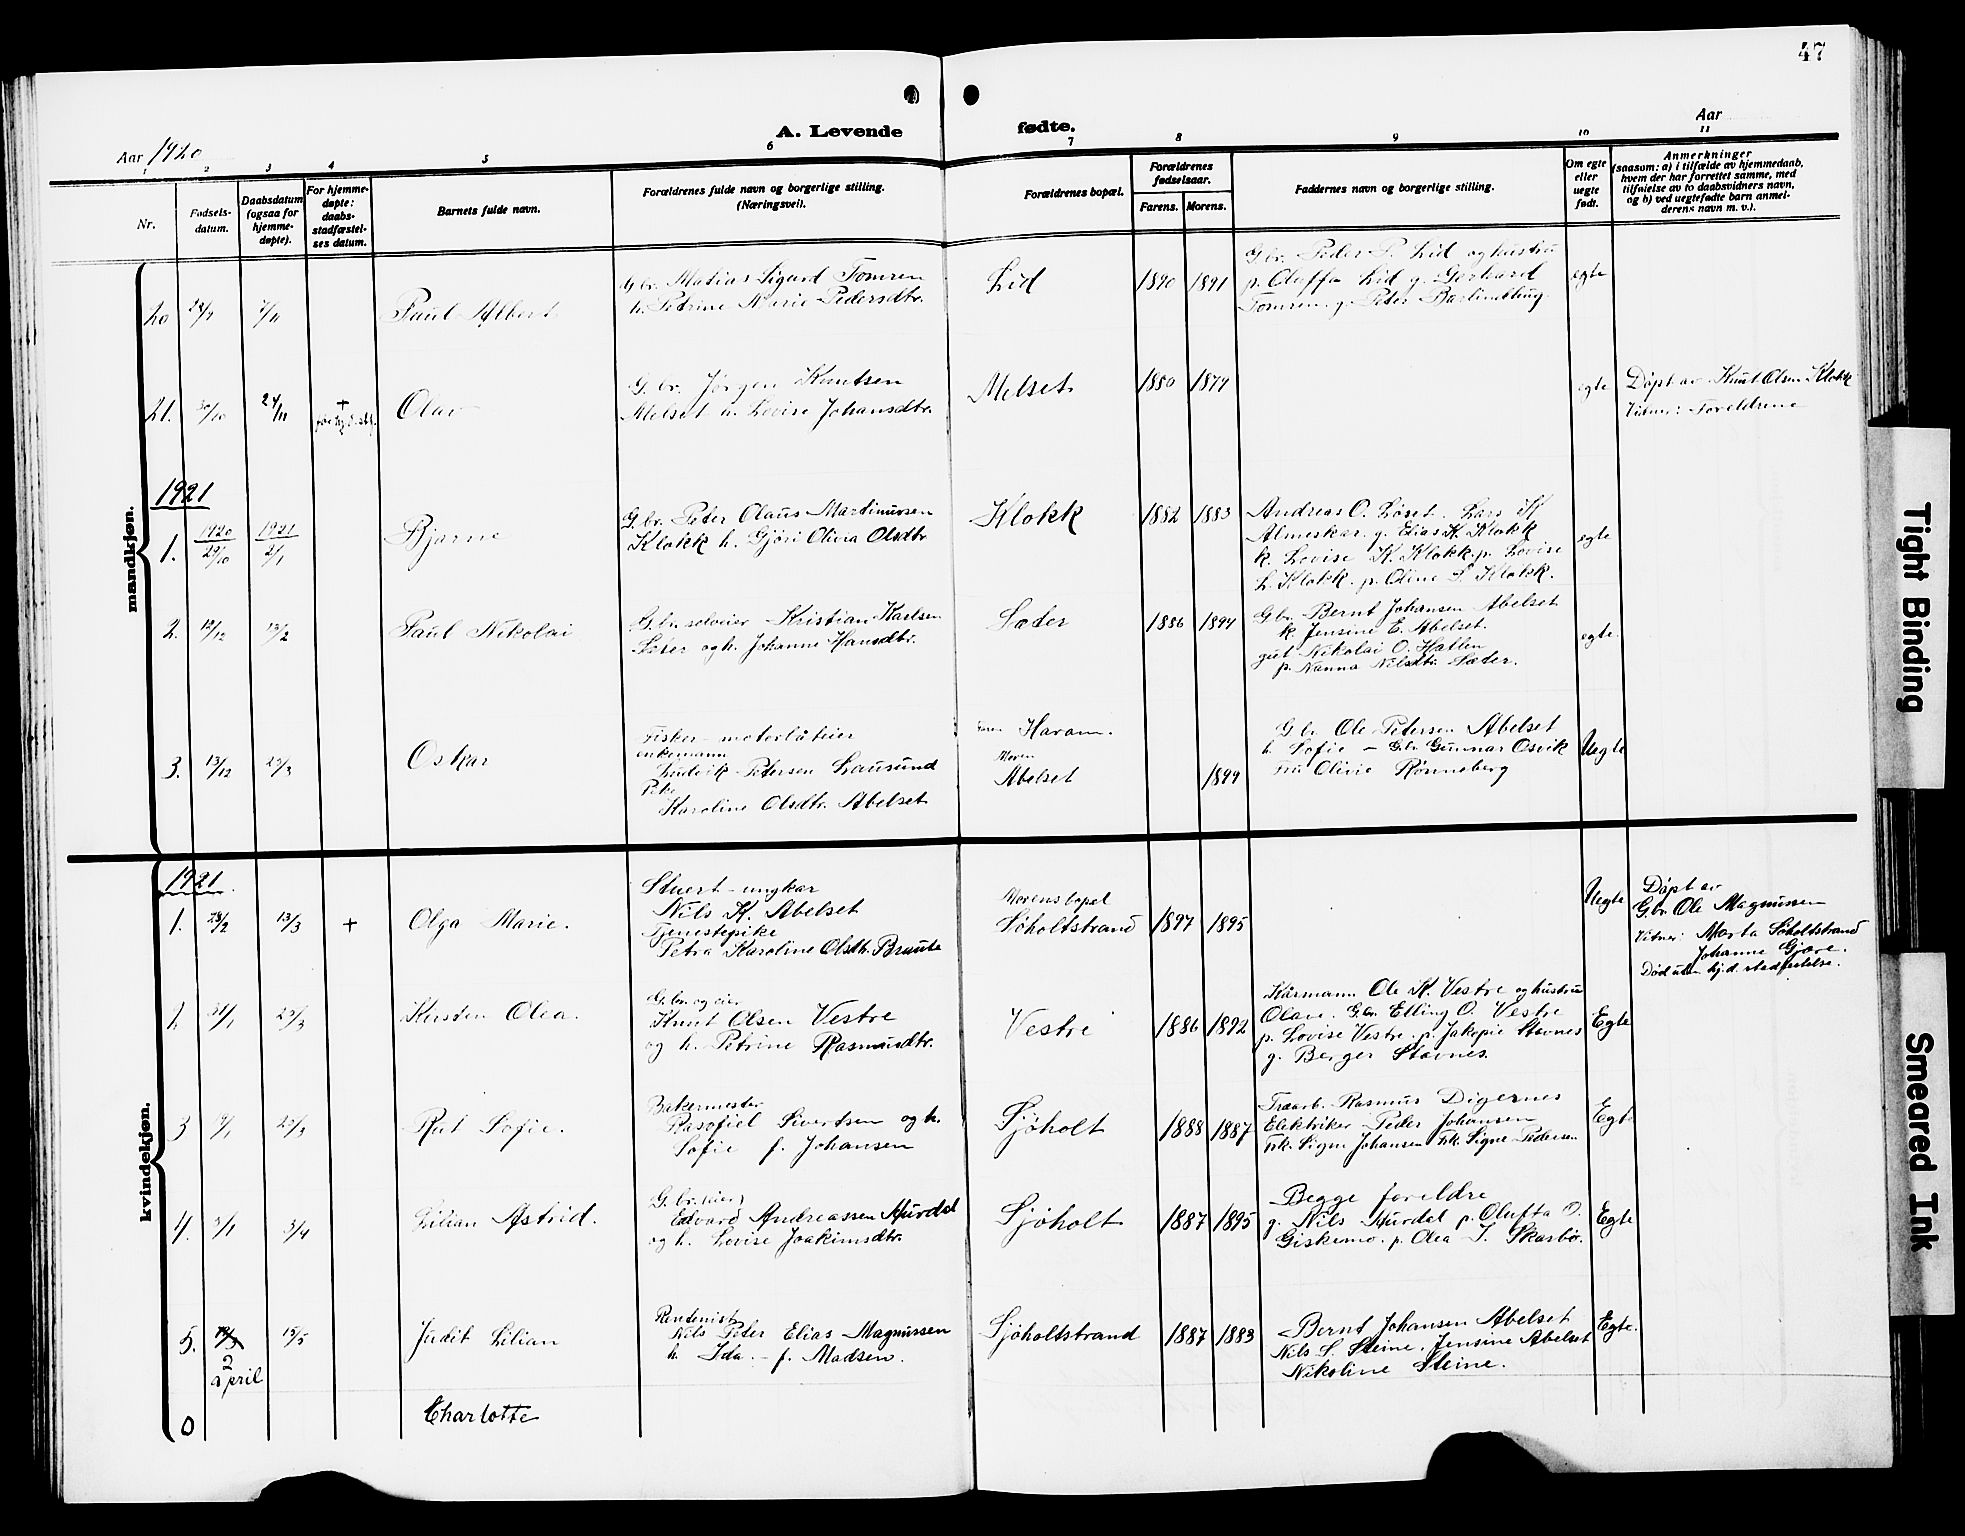 47
Aar 1920
A. Levende fødte.
Aar
1 2 3 4 5 6 7 8 9 10 11
Nr.
Fødsels-
datum.
Daabsdatum
(ogsaa for
hjemme-
døpte).
For hjemme-
døpte:
daabs-
stadfæstel-
ses datum.
Barnets fulde navn.
Forældrenes fulde navn og borgerlige stilling.
(Næringsvei).
Forældrenes bopæl.
Forældrenes
fødselsaar.
Farens. Morens.
Faddernes navn og borgerlige stilling.
Om egte
eller
uegte
født.
Anmerkninger
(saasom: a) i tilfælde av hjemmedaab,
hvem der har forrettet samme, med
tilføielse av to daabsvidners navn,
og b) ved uegtefødte barn anmel-
derens navn m. v.).
mandkjøn.
20 7/11
Paul Albert
G.br. Matias Sigard Tomren
h. Petrine Marie Pedersdtr.
Lid
1890 1891
G.br. Peder P. Lid og hustru
p. Oluffa Lid g. Gerhard
Tomren. g. Peter
egte
21. 30/10 24/11 +
Olav
G.br. Jørgen Knutsen
Melset h. Lovise Johansdtr.
Melset
1880 1877
egte
Døpt av Knut Olsen Klokk
Vitner: Foreldrene
1921
1. 1920 29/10 1921 2/1
Bjarne
G.br. Peter Olaus Martinussen
Klokk h. Gjøri Oliva Olsdtr.
Klokk
1882 1883
Andreas O. Løset. Lars K
Almeskar. g. Elias K. Klokk
k. Lovise K. Klokk. p. Lovise
L. Klokk. p. Oline P. Klokk.
egte
2. 12/12 13/2
Paul Nikolai
G.br. selveier Kristian Karlsen
Sæter og h. Johanne Hansdtr.
Sæter
1886 1894
G.br. Bernt Johansen Abelset
k. Jensine E. Abelset.
gut Nikolai O. Hatlen
p. Nanna Nilsdtr. Sæter.
egte.
3. 13/12 25/3
Oskar
Fisker - motorbåteier
enkemann
Ludvik Petersen Lausund
Pike
Karoline Olsdtr. Abelset
Faren Haram.
Moren
Abelset
1899
G.br. Ole Petersen Abelset
h. Sofie - G.br. Gunnar Osvik
Fru Olivie Rønneberg
Uegte
kvindekjøn.
1921
1. 28/2 13/3 +
Olga Marie.
Stuert - ungkar
Nils K. Abelset
Tjenestepike
Petra Karoline Olsdtr. Braute
Morens bopel
Søholtstrand
1897 1895
Uegte
Døpt av
G.br. Ole Magnussen
Vitner: Marta Søholtstrand
Johanne Gjære.
Død uten hj.d. stadfestelse.
1. 31/1 25/3
Kirsten Olea.
G.br. og eier
Knut Olsen Vestre
og h. Petrine Rasmusdtr.
Vestre
1886 1892
Kårmann Ole K. Vestre og hustru
Olave. G.br. Elling O. Vestre
p. Lovise Vestre. p. Jakopie Stavnes
g. Berger Stavnes.
Egte
3 25/3
Rut Sofie.
Bakermester
Rasofiel Sivertsen og h.
Sofie f. Johansen
Sjøholt
1888 1887
Træarb. Rasmus Digernes
Elektriker Peder Johansen
Frk. Signe Johansen Frk. Signe Pedersen
Egte
4. 3/1 3/4
Lilian Astrid.
G.br. (eier)
Edvard Andreassen Hurdal
og h. Lovise Joakimsdtr.
Sjøholt
1887 1895
Begge foreldre
g. Nils Hurdal p. Olufta O.
Giskemo. p. Olea I. Skarbø.
Egte
5. 2 april 15/5
Judit Lilian
Rentenist
Nils Peter Elias Magnussen
h. Ida. - f. Madsen.
Sjøholtstrand
1887 1883
Bernt Johansen Abelset
Nils S. Steine, Jensine Abelset
Nikoline Steine.
Egte.
0
Charlotte
Tight Binding
Smeared Ink